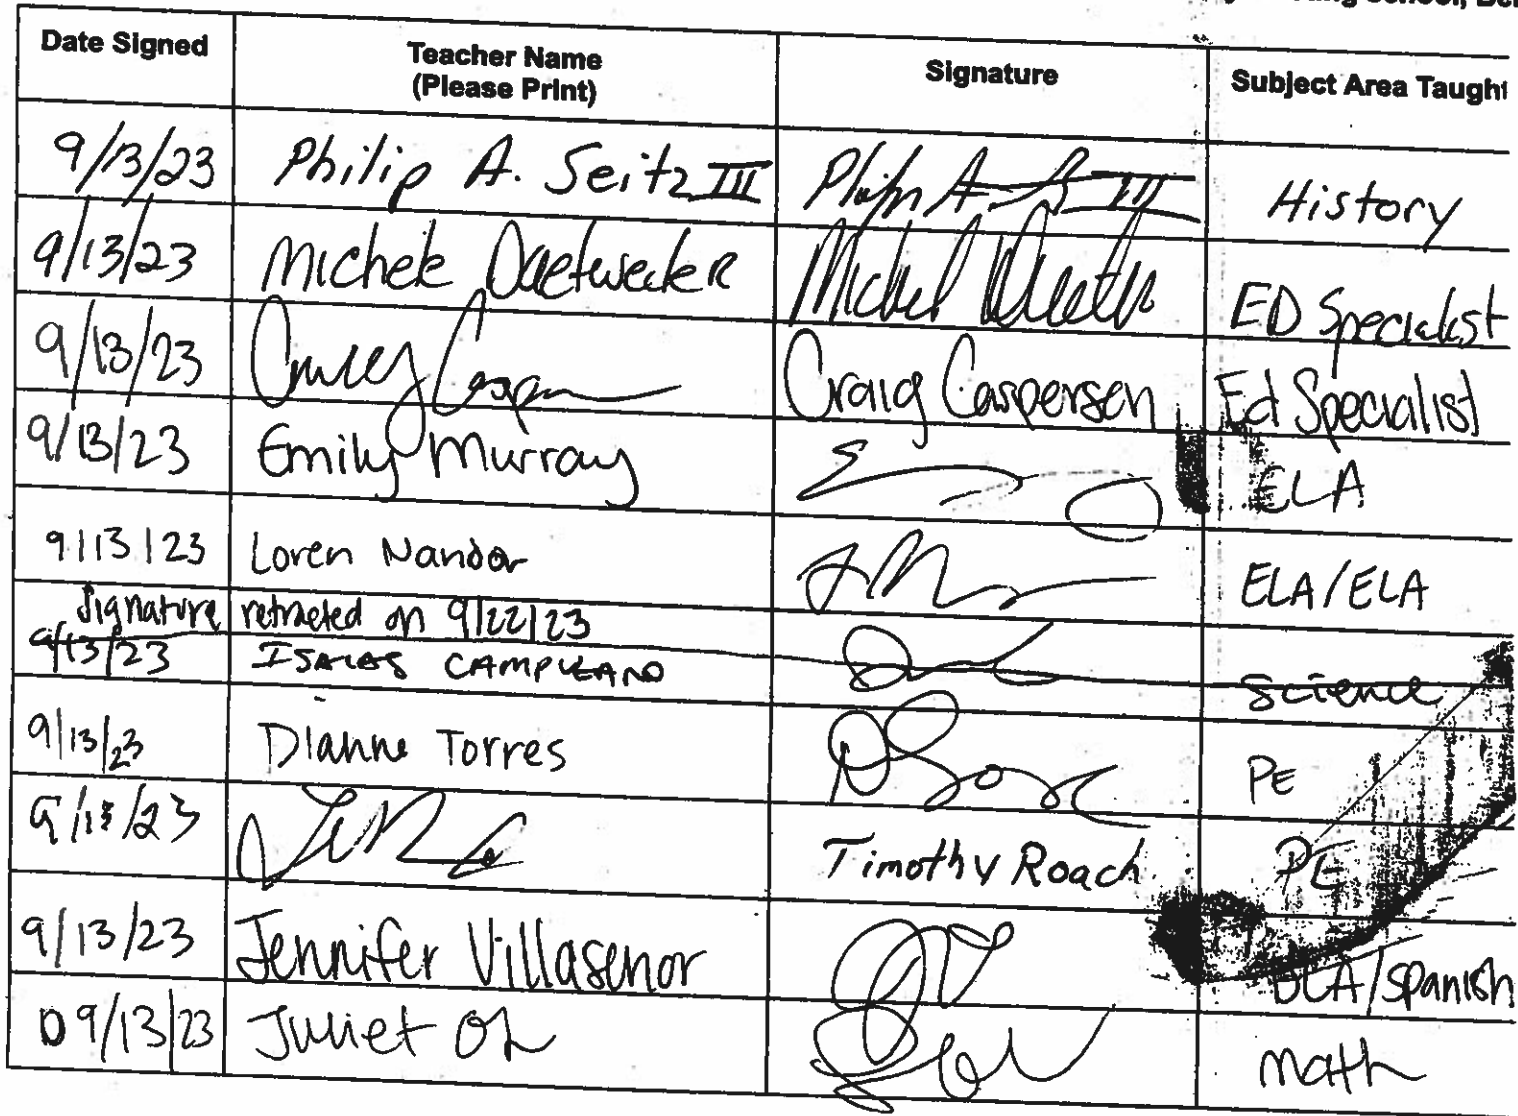 Date Signed Teacher Name Signature Subject Area Taught
(Please Print)
9/13/23 Philip A. Seitz III Philip A. S III History
9/13/23 Michele Daetweiler ED Specialist
9/13/23 Craig Caspersen Ed Specialist
9/13/23 Emily Murray ELA
9/13/23 Loren Nandor ELA/ELA
Signature retracted on 9/22/23
9/13/23 ISAIAS CAMPUZANO Science
9/13/23 Dianne Torres PE
9/13/23 Timothy Roach PE
9/13/23 Jennifer Villasenor /Spanish
9/13/23 Juliet Oh math